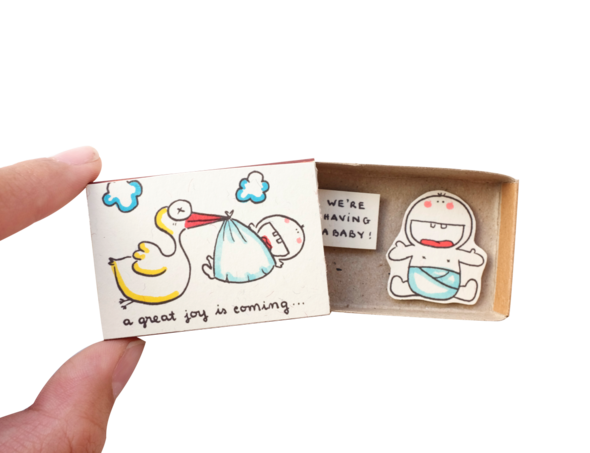 a great joy is coming...
WE'RE
HAVING
A BABY!